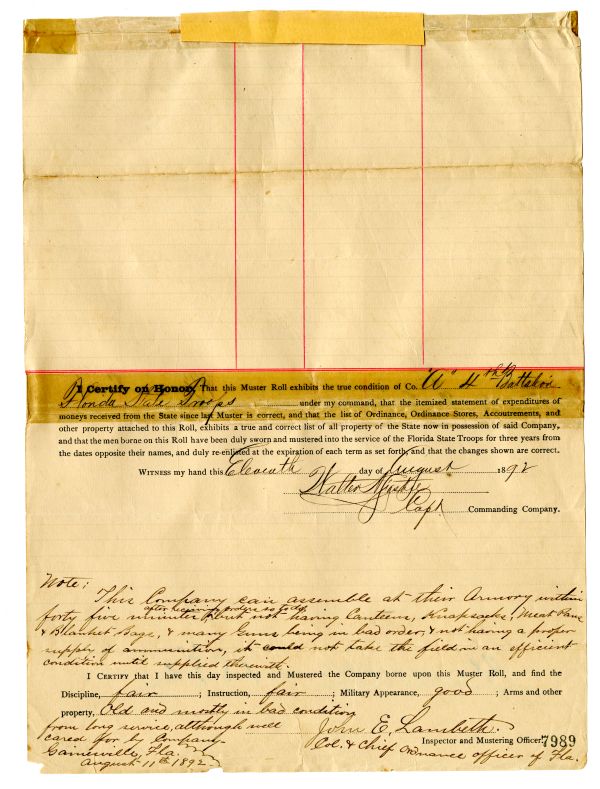 I Certify on Honor, That this Muster Roll exhibits the true condition of Co. "A" 4th Battalion
Florida State Troops under my command, that the itemized statement of expenditures of
moneys received from the State since last Muster is correct, and that the list of Ordinance, Ordinance Stores, Accoutrements, and
other property attached to this Roll, exhibits a true and correct list of all property of the State now in possession of said Company,
and that the men borne on this Roll have been duly sworn and mustered into the service of the Florida State Troops for three years from
the dates opposite their names, and duly re-enlisted at the expiration of each term as set forth, and that the changes shown are correct.
WITNESS my hand this Eleventh day of August 1892
Walter
Capt Commanding Company.
Note:
This Company can assemble at their Armory within
forty five minutes after receiving orders so to do, but not having Canteens, Knapsacks, Meat Pans
& Blanket Bags, & many Guns being in bad order, & not having a proper
supply of ammunition, it could not take the field in an efficient
condition until supplied therewith.
I CERTIFY that I have this day inspected and Mustered the Company borne upon this Muster Roll, and find the
Discipline, fair; Instruction, fair; Military Appearance, good; Arms and other
property, Old and mostly in bad condition
from long service, although well
cared for by Company.
John E. Lambeth.
Inspector and Mustering Officer.
7989
Col. & Chief Ordnance officer of Fla.
Gainesville, Fla.
August 11th 1892